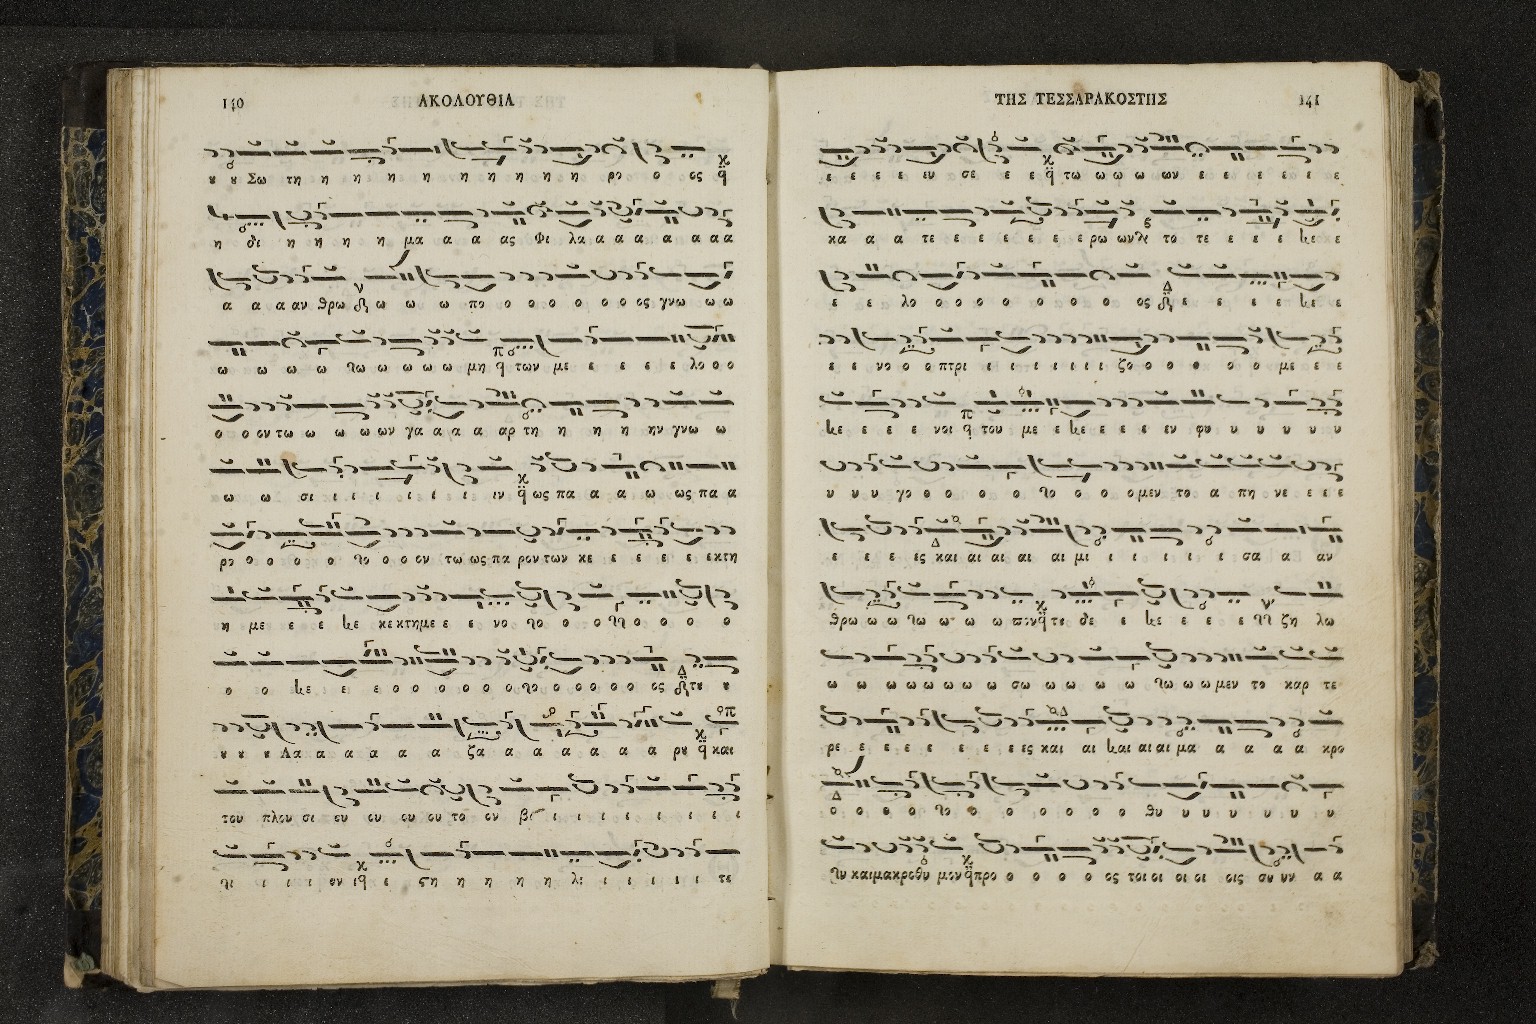 140 ΑΚΟΛΟΥΘΙΑ
υ υ Σω τη η η η η η η η η ρο ο ος
η δι η η η η μα α α ας Φι λα α α α α α α
α α α αν θρω ω ω ω πο ο ο ο ο ο ο ος γνω ω ω
ω ω ω ω ω ω ω ω μη των με ε ε ε ε λο ο ο
ο ο ον τω ω ω ω ων γα α α α αρ τη η η η ην γνω ω
ω ω σι ι ι ι ι ι ι ιν ως πα α α ω ως πα α
ρο ο ο ο ο ο ο ον τω ως πα ρον των κε ε ε ε ε εκτη
η με ε ε κεκτημε ε ε νο ο ο ο ο ο ο
ο ο ε ε ο ο ο ο ο ο ο ο ο ο ο ος του υ
υ υ υ Λα α α α α α ζα α α α α α α ρυ και
του πλου σι ου ου ου ου το ον βι ι ι ι ι ι ι
ι ι ι ον ι ε ςη η η η η λι ι ι ι ι τε
ΤΗΣ ΤΕΣΣΑΡΑΚΟΣΤΗΣ 141
ε ε ε ε ευ σε ε ε τω ω ω ω ων ε ε ε ε ε ε
κα α α τε ε ε ε ε ε ε ρω ων το τε ε ε ε ε
ε ε λο ο ο ο ο ο ο ο ο ος ε ε ε ε ε
ε ε νο ο ο πτρι ι ι ι ι ι ι ζο ο ο ο ο ο με ε ε
ε ε ε νοι του με ε ε ε ε εν φυ υ υ υ υ
υ υ υ γο ο ο ο ο ο ο ο ομεν το α πη νε ε ε ε
ε ε ε ες και αι αι αι αι μι ι ι ι ι ι σα α αν
θρω ω ω ω ω ω πον το δε ε ε ε ε ζη λω
ω ω ω ω ω ω ω ω σω ω ω ω ω ω ω ω μεν το καρ τε
ρε ε ε ε ε ε ε ε ες και αι αι αι αι μα α α α α κρο
ο ο ο ο ο ο ο ο ο ο ο θυ υ υ υ υ υ υ
καιμακροθυ μον προ ο ο ο ο ος τοι οι οι οι οις συ υν α α